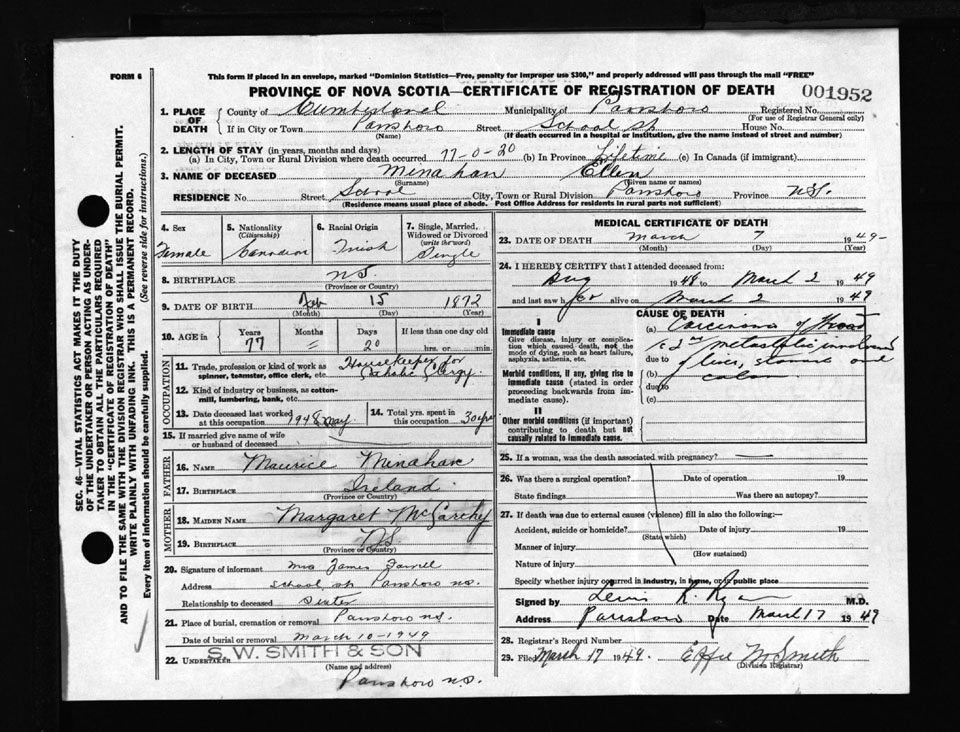 FORM 6
This form if placed in an envelope, marked "Dominion Statistics—Free, penalty for improper use $300," and properly addressed will pass through the mail "FREE"
PROVINCE OF NOVA SCOTIA—CERTIFICATE OF REGISTRATION OF DEATH 001952
SEC. 46—VITAL STATISTICS ACT MAKES IT THE DUTY
OF THE UNDERTAKER OR PERSON ACTING AS UNDER-
TAKER TO OBTAIN ALL THE PARTICULARS REQUIRED
IN THE "CERTIFICATE OF REGISTRATION OF DEATH"
AND TO FILE THE SAME WITH THE DIVISION REGISTRAR WHO SHALL ISSUE THE BURIAL PERMIT.
WRITE PLAINLY WITH UNFADING INK. THIS IS A PERMANENT RECORD.
Every item of information should be carefully supplied. (See reverse side for instructions.)
1. PLACE OF DEATH County of Cumberland Municipality of Parrsboro Registered No.
(For use of Registrar General only)
If in City or Town Parrsboro Street School St House No.
(Name) (If death occurred in a hospital or institution, give the name instead of street and number)
2. LENGTH OF STAY (in years, months and days)
(a) In City, Town or Rural Division where death occurred 77-0-20 (b) In Province Lifetime (c) In Canada (if immigrant)
3. NAME OF DECEASED Minahan Ellen
(Surname) (Given name or names)
RESIDENCE No Street School City, Town or Rural Division Parrsboro Province N.S.
(Residence means usual place of abode. Post Office Address for residents in rural parts not sufficient)
4. Sex 5. Nationality (Citizenship) 6. Racial Origin 7. Single, Married, Widowed or Divorced (write the word)
Female Canadian Irish Single
8. BIRTHPLACE N.S.
(Province or Country)
9. DATE OF BIRTH Feb 15 1872
(Month) (Day) (Year)
10. AGE in Years Months Days If less than one day old
77 = 20 hrs. or min.
OCCUPATION
11. Trade, profession or kind of work as spinner, teamster, office clerk, etc. Housekeeper for Catholic Clergy.
12. Kind of industry or business, as cotton-mill, lumbering, bank, etc.
13. Date deceased last worked at this occupation 1948 May 14. Total yrs. spent in this occupation 30 yrs
15. If married give name of wife or husband of deceased
FATHER
16. NAME Maurice Minahan
17. BIRTHPLACE Ireland
(Province or Country)
MOTHER
18. MAIDEN NAME Margaret McCarthy
19. BIRTHPLACE N.S.
(Province or Country)
20. Signature of informant Mrs James Farrell
Address School St Parrsboro N.S.
Relationship to deceased Sister
21. Place of burial, cremation or removal Parrsboro N.S.
Date of burial or removal March 10-1949
22. UNDERTAKER S. W. SMITH & SON
(Name and address)
Parrsboro N.S.
MEDICAL CERTIFICATE OF DEATH
23. DATE OF DEATH March 7 1949
(Month) (Day) (Year)
24. I HEREBY CERTIFY that I attended deceased from:
Aug 1948 to March 2 1949
and last saw her alive on March 2 1949
CAUSE OF DEATH
I
Immediate cause
Give disease, injury or complication which caused death, not the mode of dying, such as heart failure, asphyxia, asthenia, etc.
(a) Carcinoma of Throat
c 2nd metastatic
due to of liver, stomach and
(b) colon
due to
(c)
Morbid conditions, if any, giving rise to immediate cause (stated in order proceeding backwards from immediate cause).
II
Other morbid conditions (if important) contributing to death but not causally related to immediate cause.
25. If a woman, was the death associated with pregnancy?
26. Was there a surgical operation? Date of operation 19
State findings Was there an autopsy?
27. If death was due to external causes (violence) fill in also the following:—
Accident, suicide or homicide? Date of injury 19
(State which)
Manner of injury
(How sustained)
Nature of injury
Specify whether injury occurred in industry, in home, or in public place
Signed by R. Ryan M.D.
Address Parrsboro Date March 17 1949
28. Registrar's Record Number
29. Filed March 17 1949. Effie W. Smith
(Division Registrar)